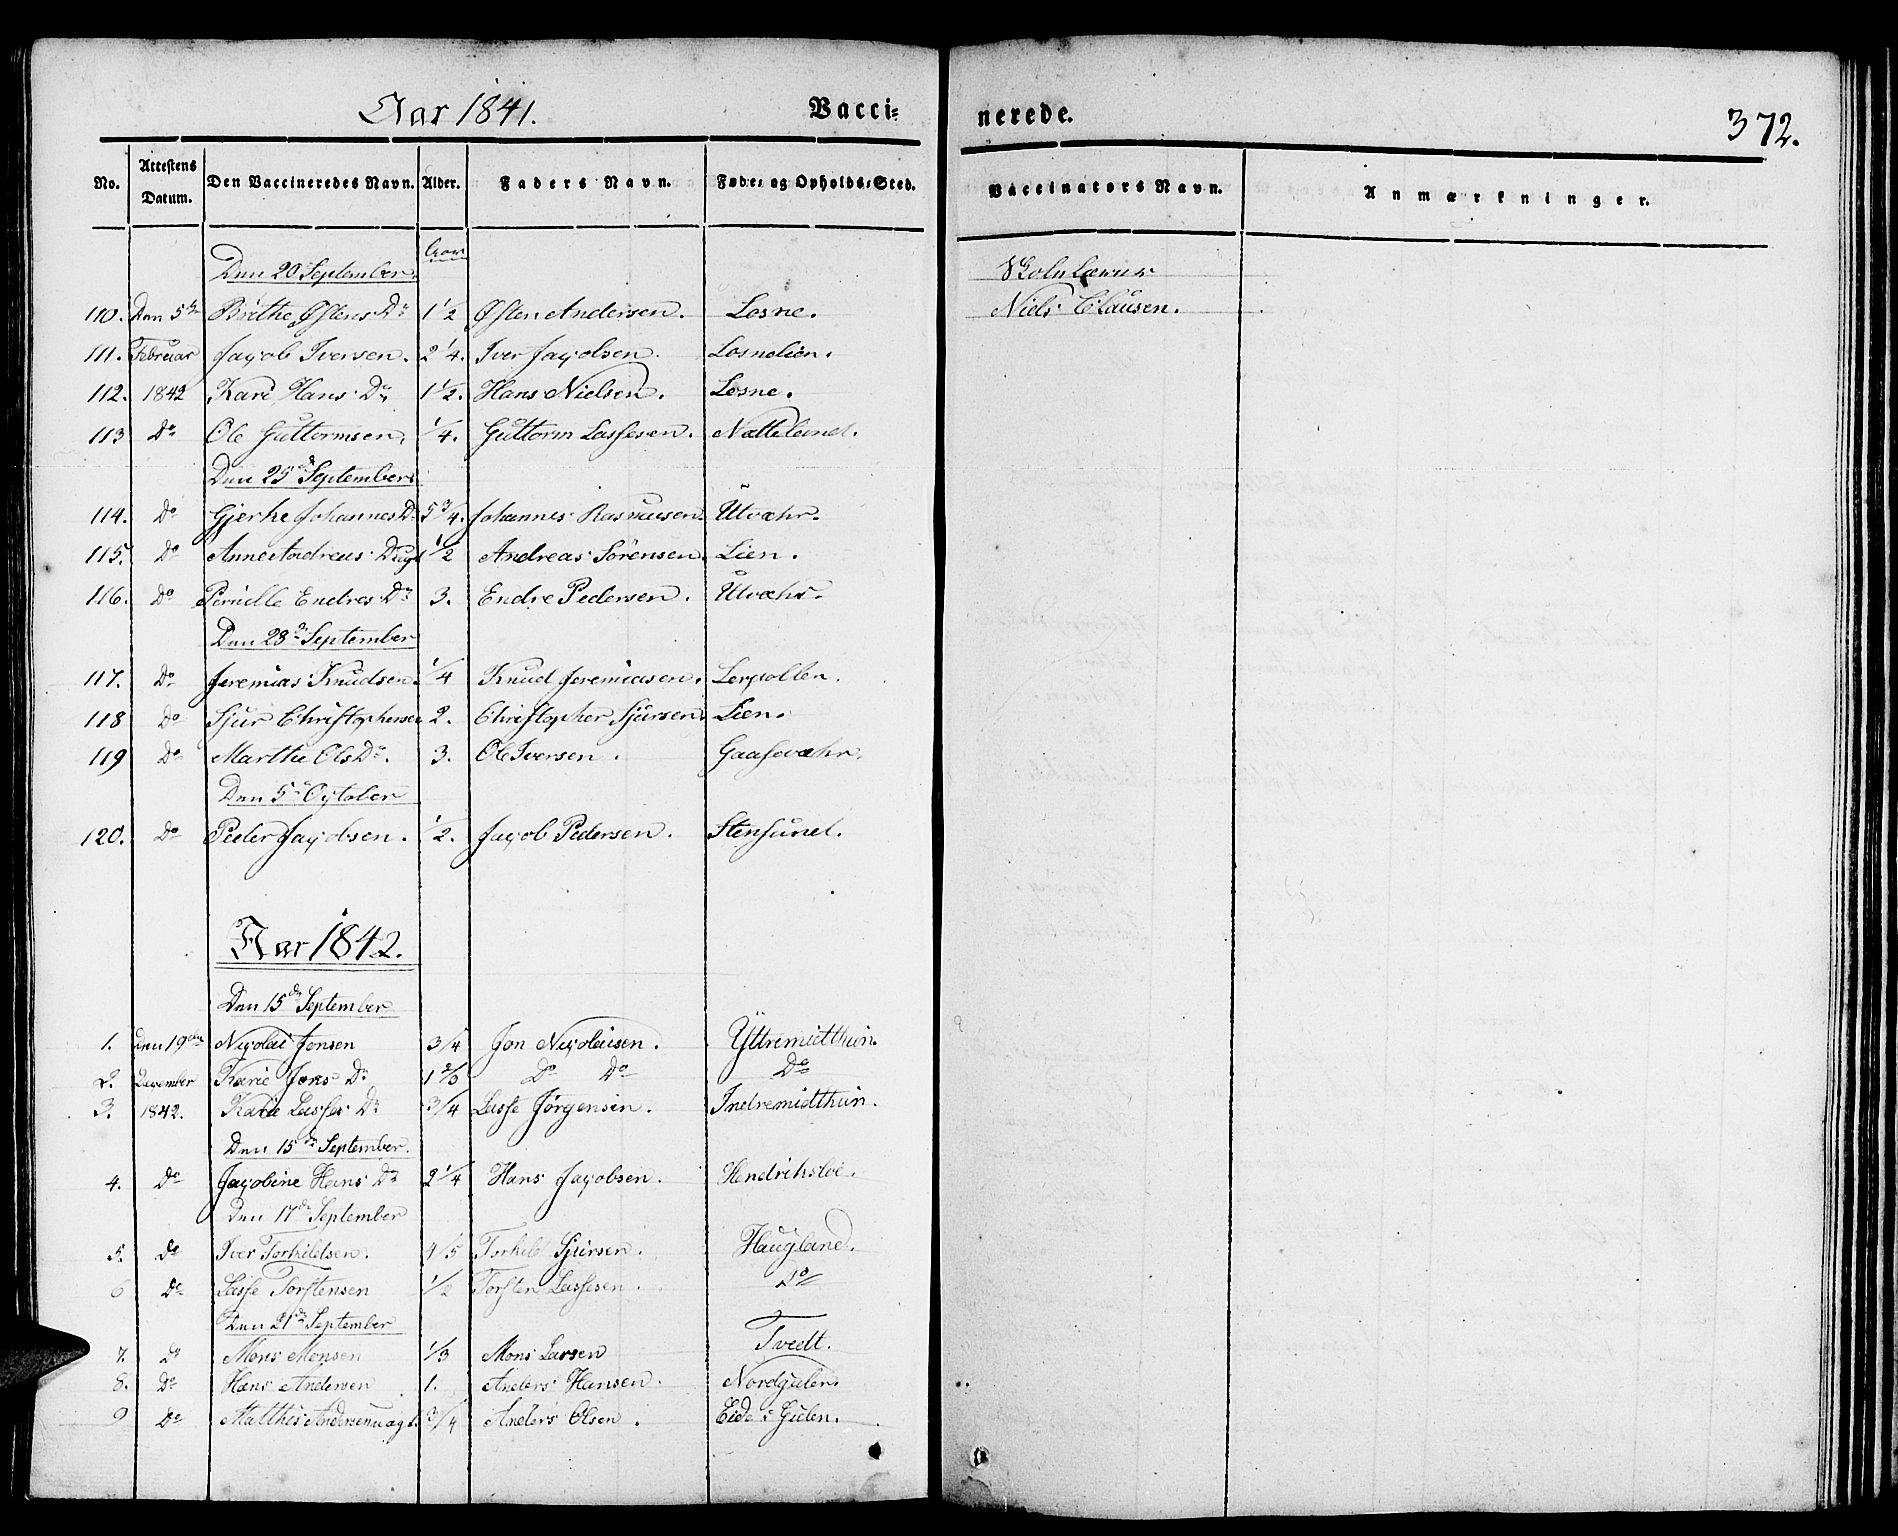 Aar 1841. Vacci- nerede. 372.
No. Attestens Datum. Den Vaccineredes Navn. Alder. Faders Navn. Føde- og Opholds-Sted. Vaccinators Navn. Anmærkninger.
Den 20 September Aar Skolelærer
110. Den 5te Brithe Østens Dr 1 1/2 Østen Andersen. Losne. Niels Clausen.
111. Februar Jacob Iversen. 2 1/4. Iver Jacobsen. Losnelien.
112. 1842 Kari Hans Dr 1 1/2. Hans Nielsen. Losne.
113 Do Ole Guttormsen. 1/4. Guttorm Lassesen. Nætteland.
Den 25de September
114. Do Gjerke Johannes D. 5 3/4. Johannes Rasmusen. Utvæhr.
115. Do Anne Andreas Dagt 1/2 Andreas Sörensen. Lien.
116. Do Pernille Endres Dr 3. Endre Pedersen. Utvæhr.
Den 28de September
117. Do Jeremias Knudsen. 1/4 Knud Jeremiasen. Lerpollen.
118 Do Sjur Christophersen 2. Christopher Sjursen. Lien.
119 Do Marthe Ols Dr. 3. Ole Iversen. Gaasevæhr.
Den 5te October
120. Do Peder Jacobsen. 1/2. Jacob Pedersen. Stensund.
Aar 1842.
Den 15de September
1. Den 19den Nicolai Jonsen 3/4 Jon Nicolaisen. Yttremidthun.
2. December Karie Jons Dr 1 2/3 Do Do Do
3. 1842. Karie Lasses Dr 3/4 Lasse Jörgensen. Indremidthun.
Den 15de September.
4. Do Jacobine Hans Dr 2 1/4 Hans Jacobsen. Hendriksboe.
Den 17de September
5. Do Iver Torkildsen. 4/5 Torkild Sjursen. Haugland.
6 Do Lasse Torstensen 1/2 Torsten Lassesen. Do
Den 21de September
7. Do Mons Monsen 1/3 Mons Larsen Tvedt.
8. Do Hans Andersen 1. Anders Hansen. Nordgulen
9 Do Matthis Andersen 3/4 Anders Olsen. Eide i Gulen.